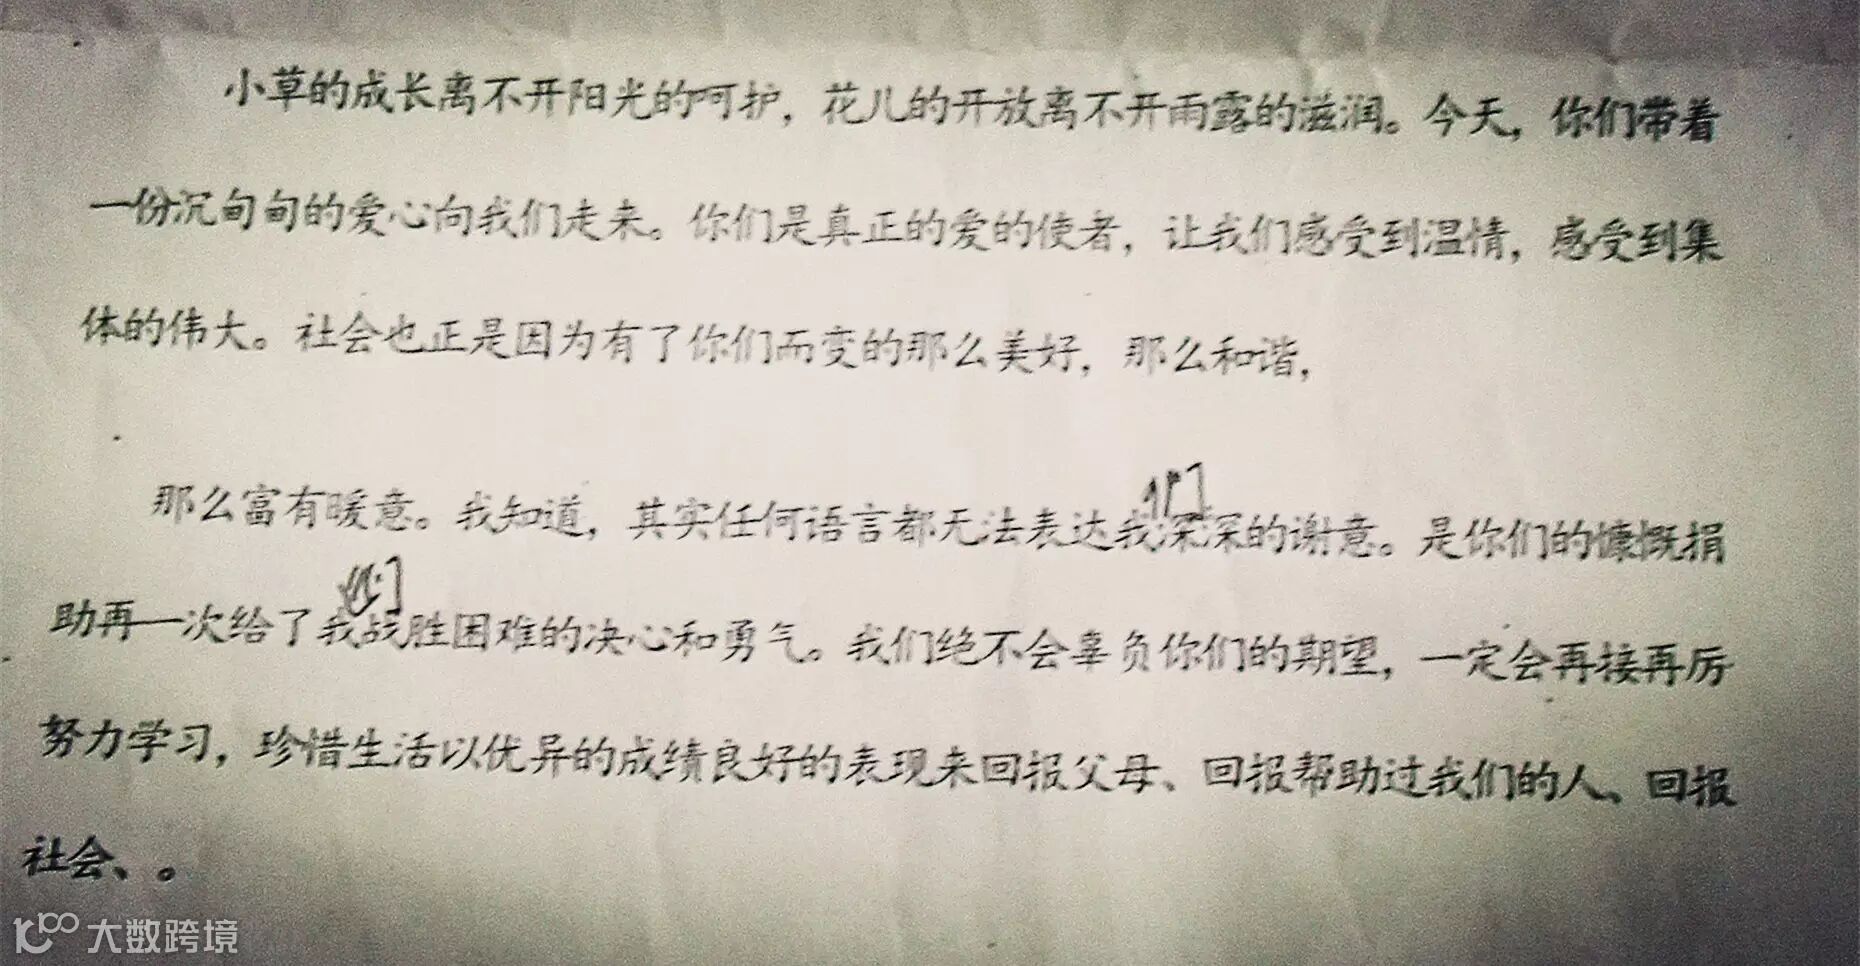 小草的成长离不开阳光的呵护，花儿的开放离不开雨露的滋润。今天，你们带着
一份沉甸甸的爱心向我们走来。你们是真正的爱的使者，让我们感受到温情，感受到集
体的伟大。社会也正是因为有了你们而变的那么美好，那么和谐，
们
那么富有暖意。我知道，其实任何语言都无法表达我深深的谢意。是你们的慷慨捐
们
助再一次给了我战胜困难的决心和勇气。我们绝不会辜负你们的期望，一定会再接再厉
努力学习，珍惜生活以优异的成绩良好的表现来回报父母、回报帮助过我们的人、回报
社会、。
大数跨境